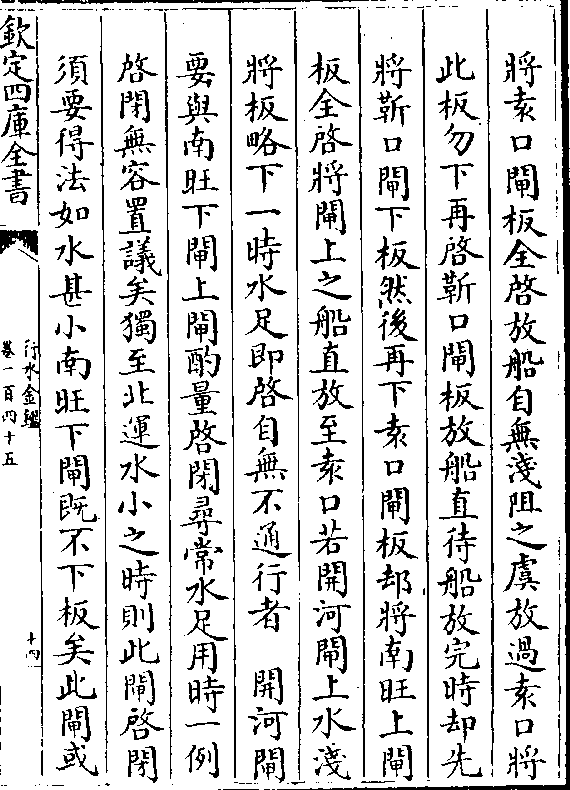 將袁口閘板全啓放船自無淺阻之虞放過袁口將
此板勿下再啓靳口閘板放船直待船放完時却先
將靳口閘下板然後再下袁口閘板却將南旺上閘
板全啓將閘上之船直放至袁口若開河閘上水淺
將板略下一時水足即啓自無不通行者　開河閘
要與南旺下閘上閘酌量啓閉尋常水足用時一例
啓閉無容置議矣獨至北運水小之時則此閘啓閉
須要得法如水甚小南旺下閘既不下板矣此閘或
欽定四庫全書
行水金鑑
卷一百四十五
十四